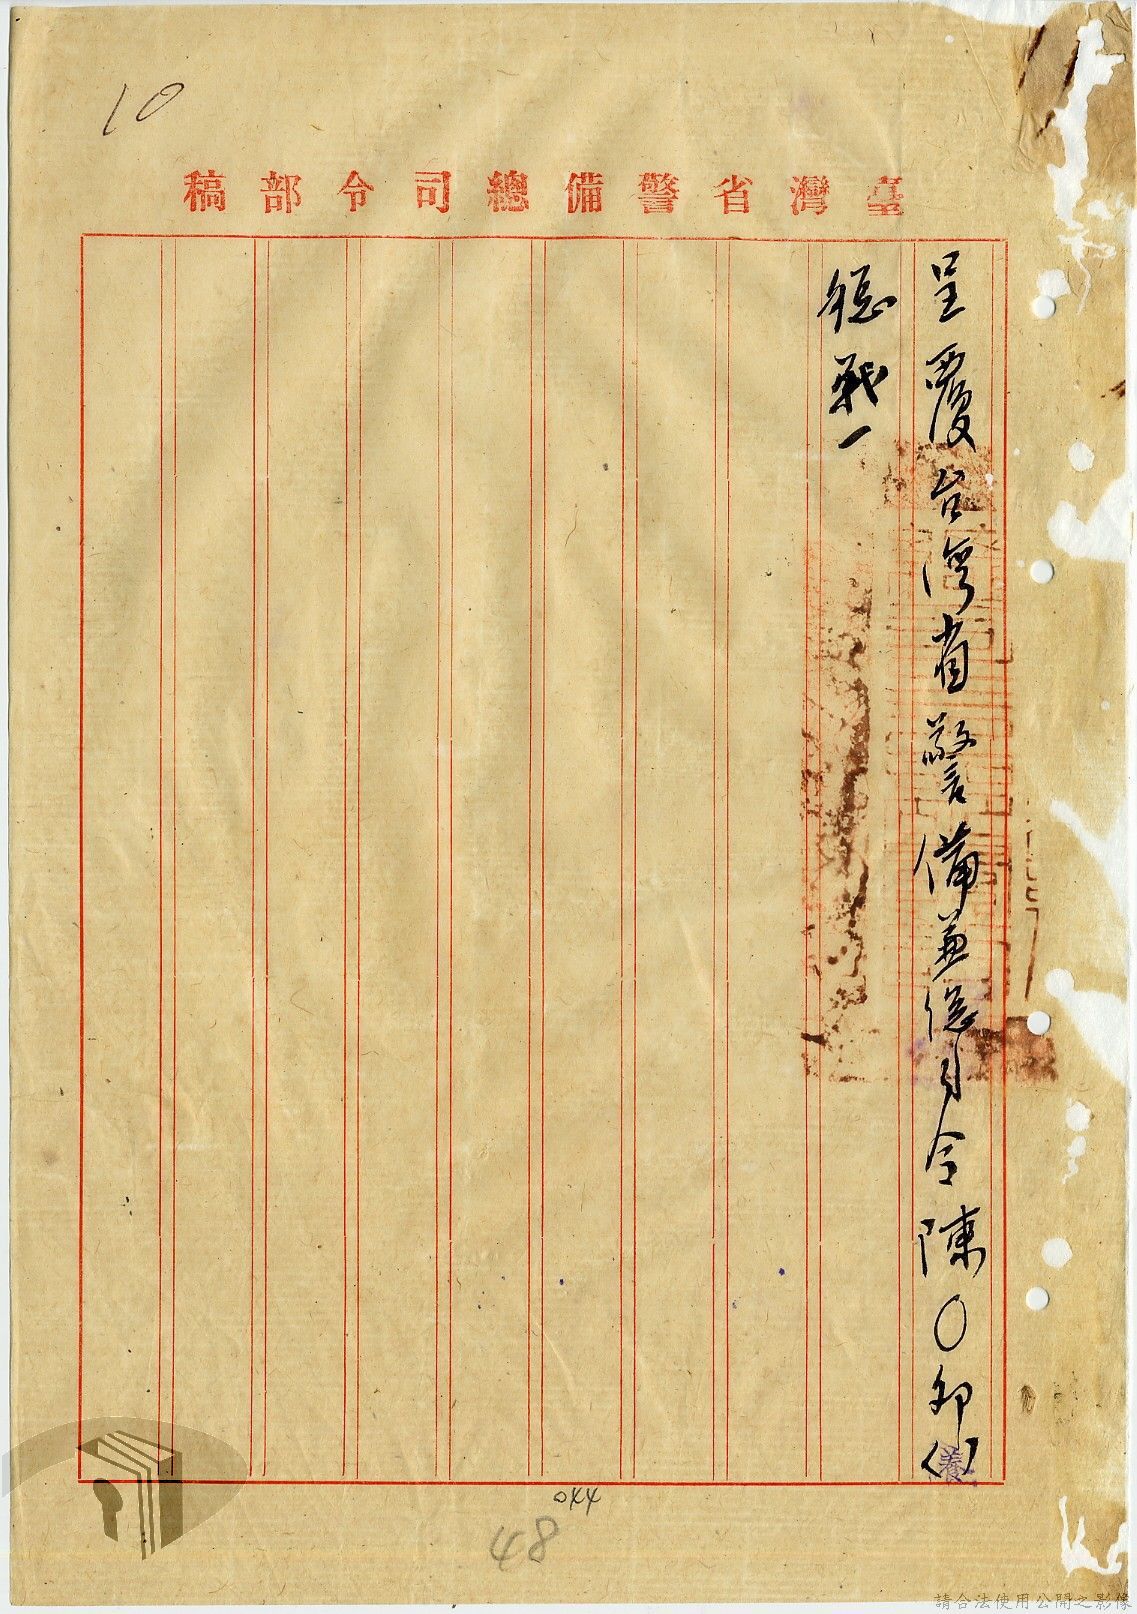 10
臺灣省警備總司令部稿
呈覆台灣省警備兼總司令陳○卯（養）
總戰一
044
48
請合法使用公開之影像